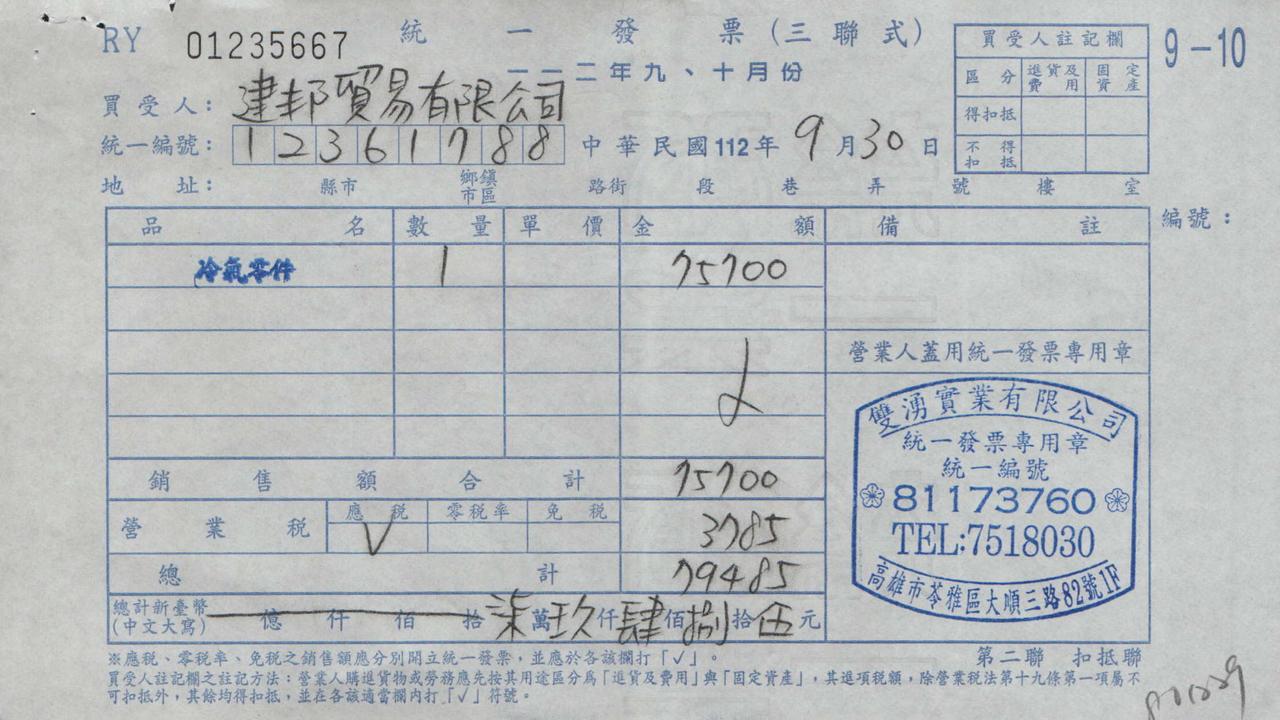 RY 01235667 統一發票(三聯式) 9-10
一一二年九、十月份
買受人註記欄
區分 進貨及費用 固定資產
得扣抵
不得扣抵
買受人: 建邦貿易有限公司
統一編號: 12361788 中華民國112年9月30日
地址: 縣市 鄉鎮市區 路街 段 巷 弄 號 樓 室
品名 數量 單價 金額 備註 編號:
冷氣零件 1 75700
營業人蓋用統一發票專用章
銷售額合計 75700
營業稅 應稅 零稅率 免稅 3785
V
總計 79485
總計新臺幣(中文大寫) 億 仟 佰 拾 柒萬玖仟肆佰捌拾伍元
雙湧實業有限公司
統一發票專用章
統一編號
81173760
TEL:7518030
高雄市苓雅區大順三路82號1F
※應稅、零稅率、免稅之銷售額應分別開立統一發票,並應於各該欄打「✓」。
第二聯 扣抵聯
買受人註記欄之註記方法:營業人購進貨物或勞務應先按其用途區分為「進貨及費用」與「固定資產」,其進項稅額,除營業稅法第十九條第一項屬不
可扣抵外,其餘均得扣抵,並在各該適當欄內打「✓」符號。